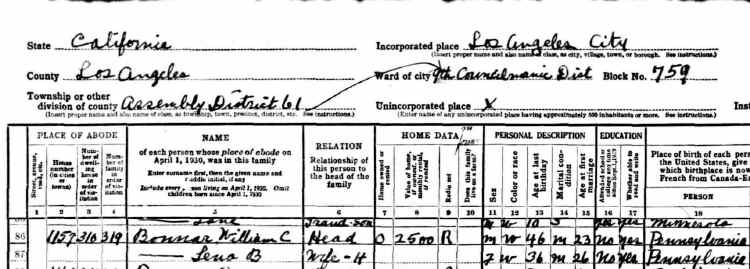 State California
Incorporated place Los Angeles City
(Insert proper name and also name of class, as city, village, town, or borough. See instructions.)
County Los Angeles
Ward of city 9th Councilmanic Dist Block No. 759
Township or other
division of county Assembly District 61
(Insert proper name and also name of class, as township, town, precinct, district, etc. See instructions.)
Unincorporated place X
(Enter name of any unincorporated place having approximately 500 inhabitants or more. See instructions.)
PLACE OF ABODE NAME RELATION HOME DATA PERSONAL DESCRIPTION EDUCATION
of each person whose place of abode on
April 1, 1930, was in this family
Enter surname first, then the given name and
middle initial, if any
Include every living on April 1, 1930. Omit
children born since April 1, 1930
Relationship of
this person to
the head of the
family
Street, avenue, road, etc.
House number (in cities or towns)
Number of dwelling house in order of visitation
Number of family in order of visitation
Home owned or rented
Value of home, if owned, or monthly rental, if rented
Radio set
Does this family live on a farm?
Sex
Color or race
Age at last birthday
Marital condition
Age at first marriage
Attended school or college any time since Sept. 1, 1929
Whether able to read and write
Place of birth of each pers
the United States, give
which birthplace is now
French from Canada-E
PERSON
1 2 3 4 5 6 7 8 9 10 11 12 13 14 15 16 17 18
Grand-son M W 10 S yes Minnesota
86 1159 310 319 Bonnar William C Head O 2500 R M W 46 M 23 No Yes Pennsylvania
87 — Lena B Wife-H F W 36 M 26 No Yes Pennsylvania